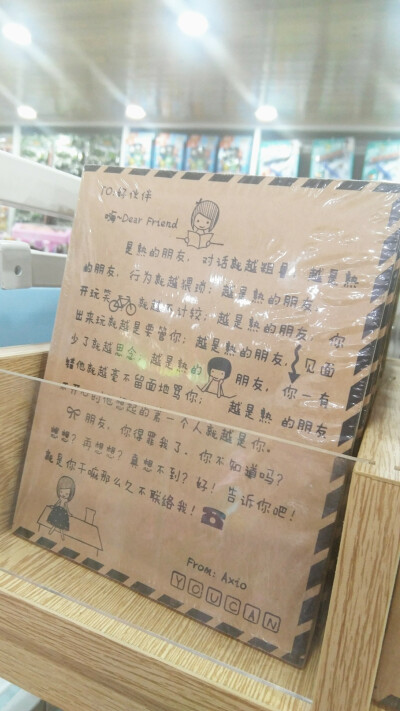 TO:好伙伴
嗨~Dear Friend
是熟的朋友, 对话就越粗鲁; 越是熟
的朋友, 行为就越猥琐; 越是熟的朋友,
开玩笑 就越不计较; 越是熟的朋友, 你
出来玩就越是要管你; 越是熟的朋友, 见面
少了就越思念 越是熟的 朋友, 你一有
错他就越毫不留面地骂你; 越是熟 的朋友
开心时他想越的第一个人就越是你。
朋友, 你得罪我了, 你不知道吗?
想想? 再想想? 真想不到? 好! 告诉你吧!
就是你干嘛那么久不联络我!
From: Axto
YOUCAN